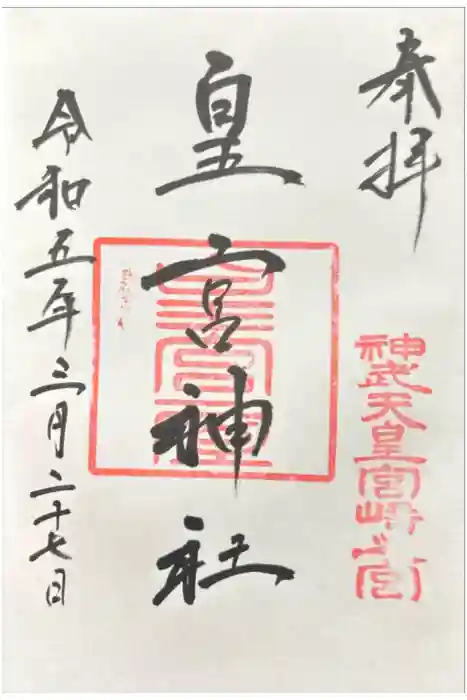 奉拝
神武天皇宮崎之宮
皇宮神社
令和五年三月二十七日